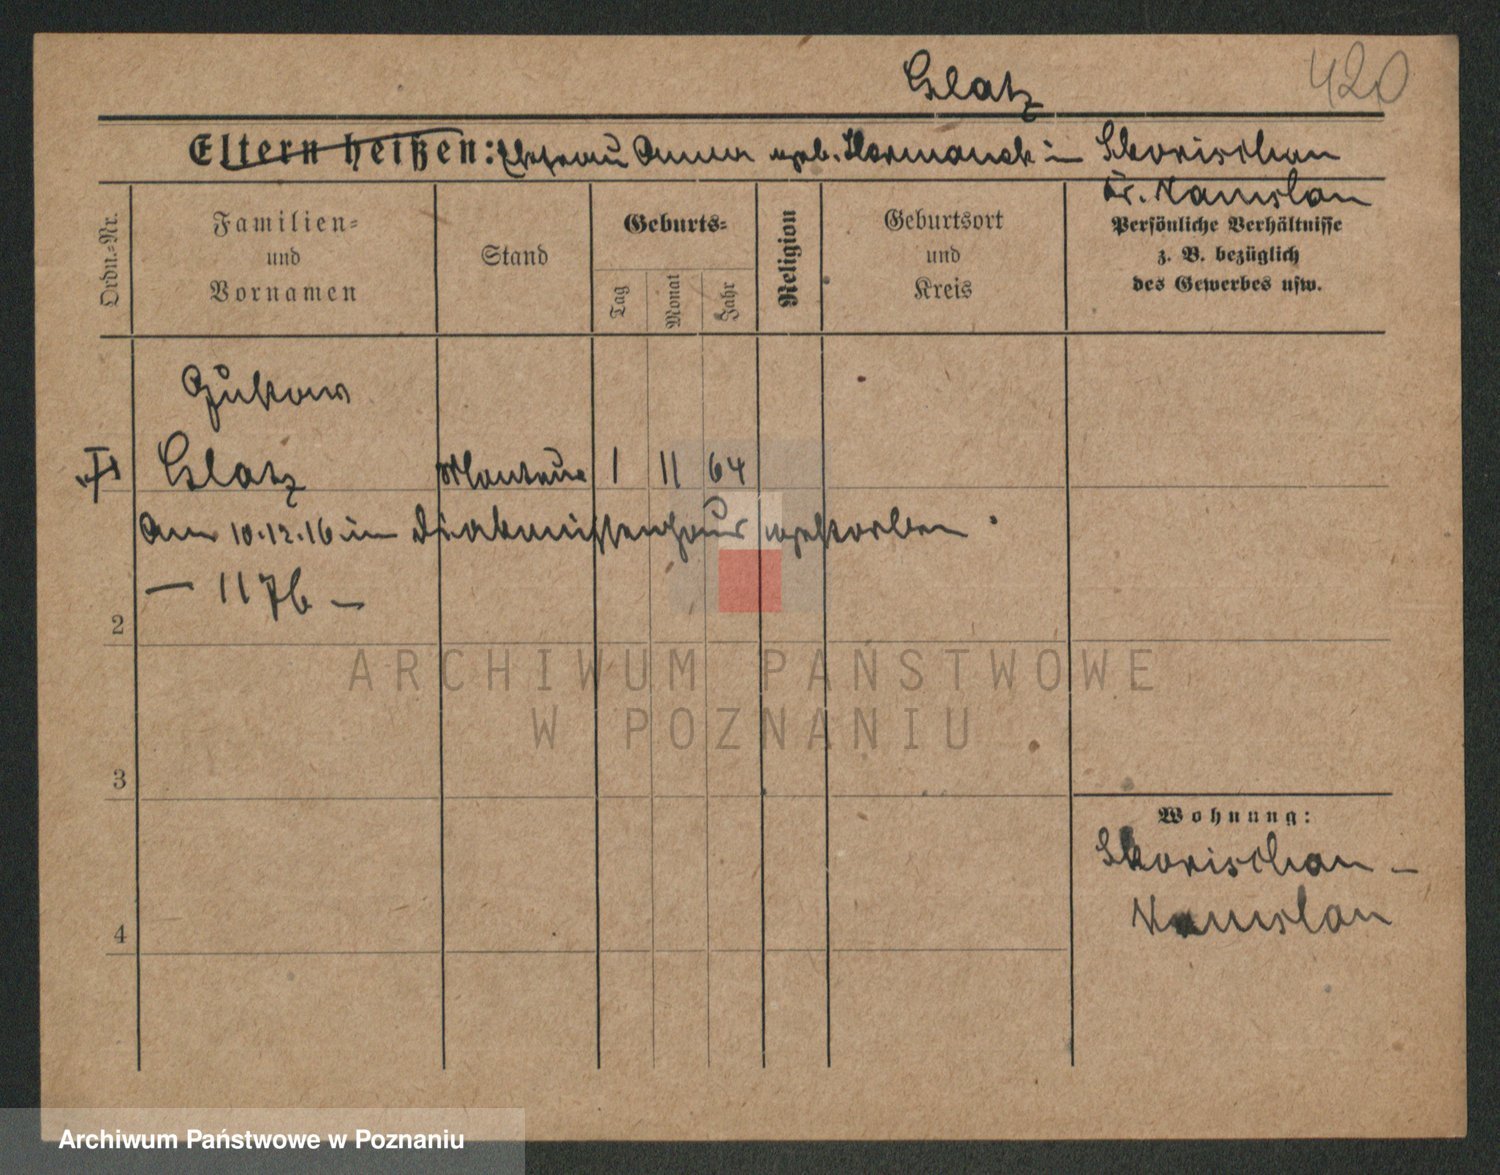 Glatz
420
Eltern heißen: Ehefrau Anna geb. Hermanek in Skorischau
Kr. Namslau
Ordn.=Nr.
Familien=
und
Vornamen
Stand
Geburts=
Tag
Monat
Jahr
Religion
Geburtsort
und
Kreis
Persönliche Verhältnisse
z. B. bezüglich
des Gewerbes usw.
Gustav
Glatz Monteur 1 11 64
Am 10.12.16 im Diakonissenhaus gestorben.
— 1176 —
2
3
4
Wohnung:
Skorischau —
Namslau
ARCHIWUM PAŃSTWOWE
W POZNANIU
Archiwum Państwowe w Poznaniu